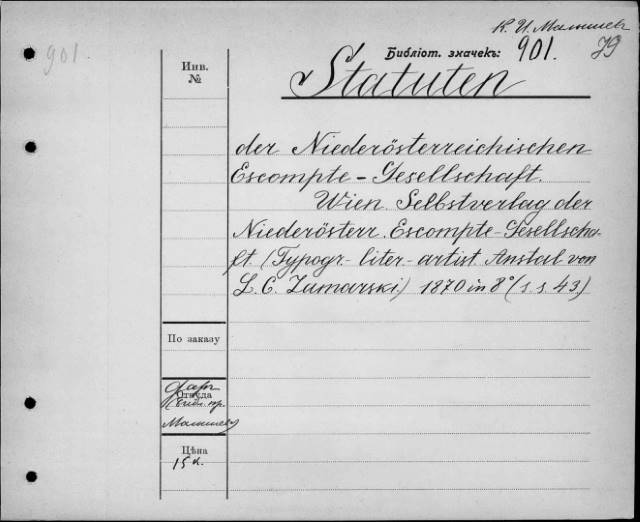 К. И. Малышев
901.
Библіот. значекъ: 901. 79
Инв.
№
Statuten
der Niederösterreichischen
Escompte-Gesellschaft.
Wien. Selbstverlag der
Niederösterr. Escompte-Gesellscha-
ft. (Typogr.- liter- artist. Anstal von
L. C. Zamarski.) 1870 in 8° (1 s. 43.)
По заказу
Откуда
Малышев
Цѣна
15 к.